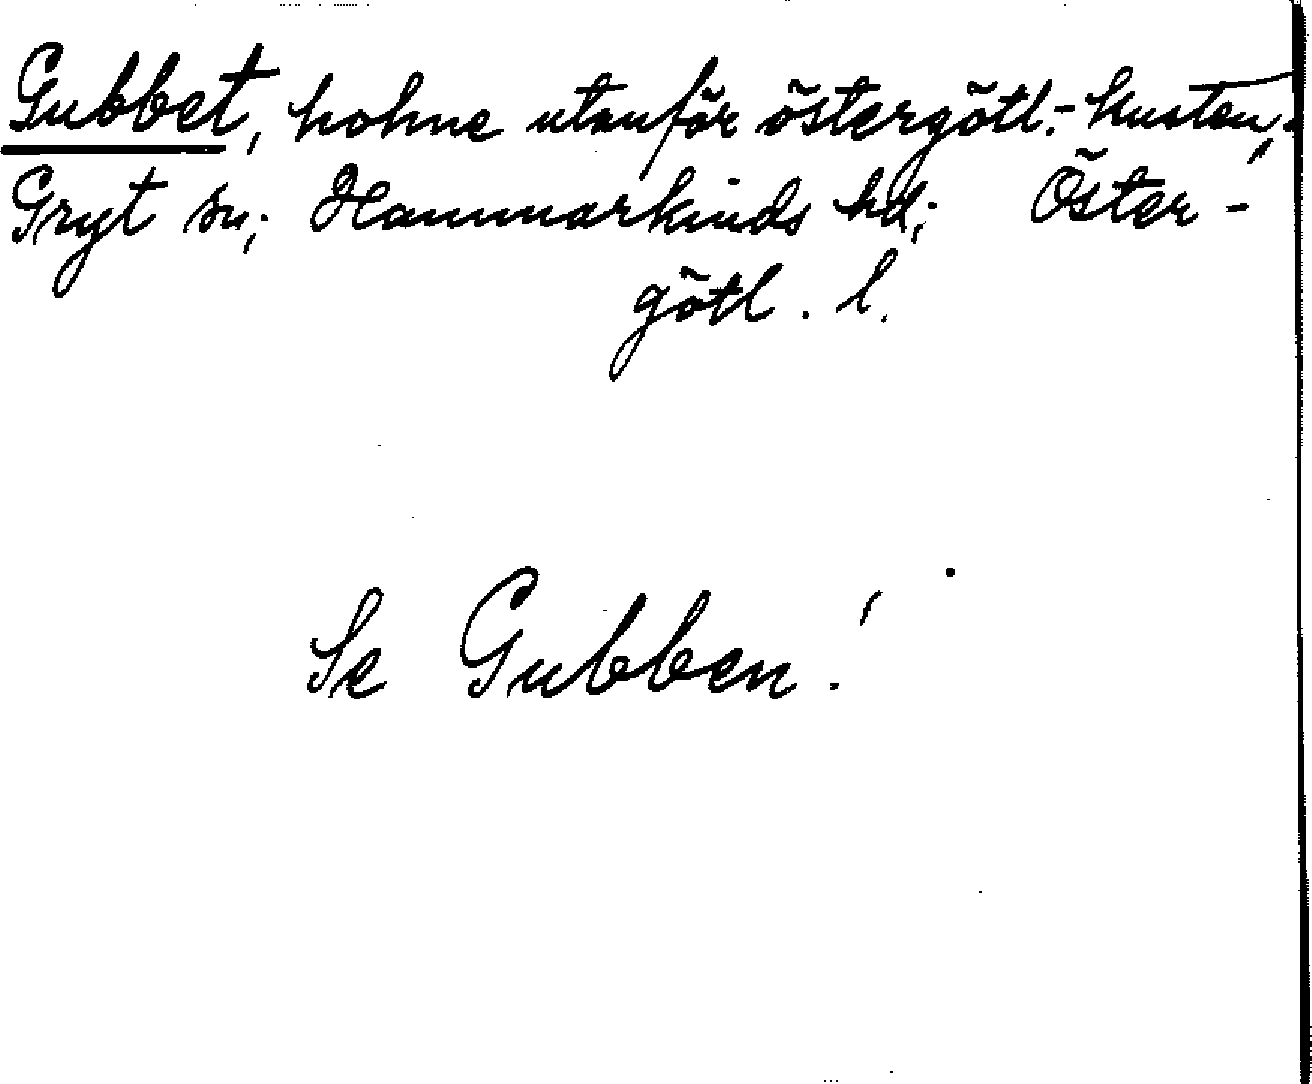 Gubbet, holme utanför östergötl.-kusten,
Gryt sn; Hammarkinds hd; Öster-
götl. l.
Se Gubben!